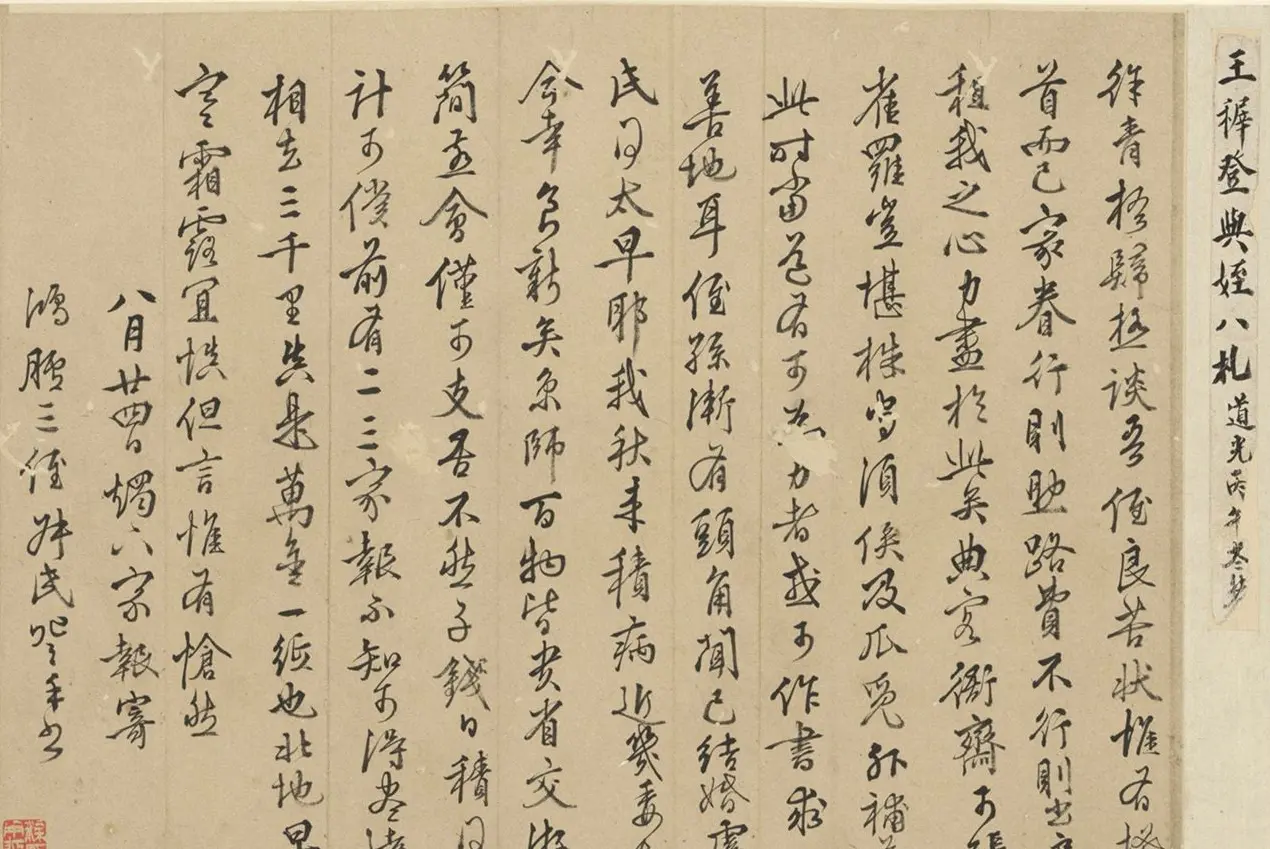 王穉登與姪八札 道光丙午
徐青梧歸極談吾侄良苦狀惟有
首而已家眷行則助路費不行則
積我之心力盡於此矣典客衙齋可
雀羅豈堪株守須俟及瓜覓外補
此時當道有可為力者或可作書求
善地耳侄孫漸有頭角聞已結婚
民得太早耶我秋來積病近幾委
今幸良新矣京師百物皆貴省交
簡燕會僅可支吾不然子錢日積
計可償前有二三家報不知可得
相去三千里真是萬金一紙也北地早
寒霜露宜慎但言惟有愴然
八月廿四日燭下家報寄
鴻臚三侄 登手書